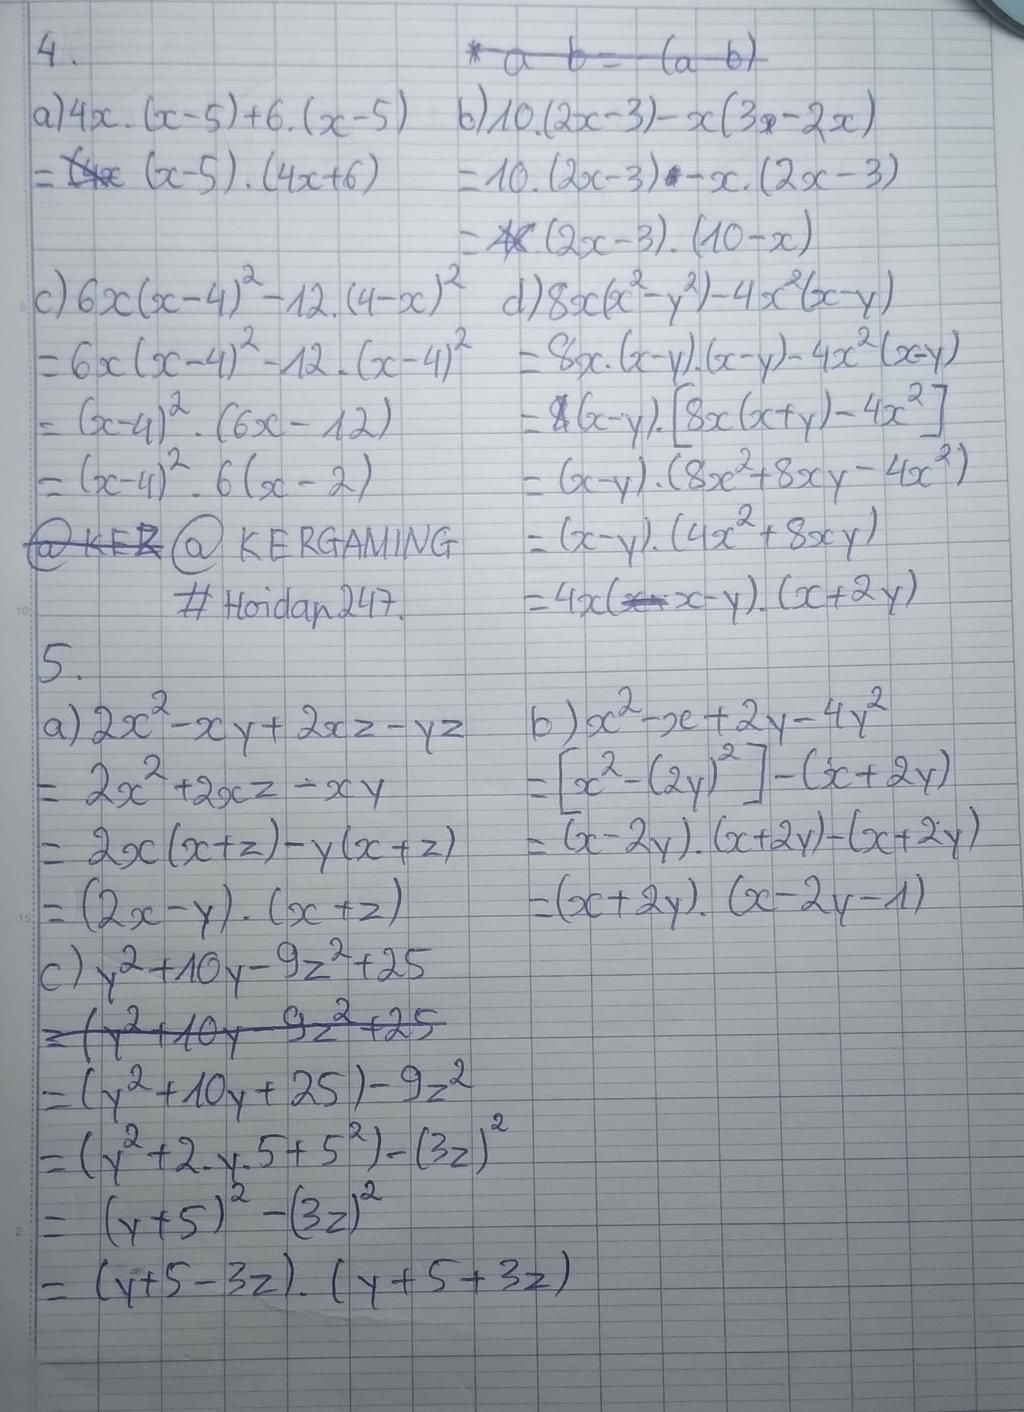 4.
* a b = (a b)
a) 4x.(x-5)+6.(x-5)
= (x-5).(4x+6)
b) 10.(2x-3)-x(3-2x)
= 10.(2x-3)-x.(2x-3)
= (2x-3).(10-x)
c) 6x(x-4)²-12.(4-x)²
= 6x(x-4)²-12.(x-4)²
= (x-4)².(6x-12)
= (x-4)².6(x-2)
@KER @ KERGAMING
#Hoidap247.
d) 8x(x²-y²)-4x²(x-y)
= 8x.(x-y).(x-y)-4x²(x-y)
= (x-y).[8x(x+y)-4x²]
= (x-y).(8x²+8xy-4x²)
= (x-y).(4x²+8xy)
= 4x(x-y).(x+2y)
5.
a) 2x²-xy+2xz-yz
= 2x²+2xz-xy
= 2x(x+z)-y(x+z)
= (2x-y).(x+z)
b) x²-x+2y-4y²
= [x²-(2y)²]-(x+2y)
= (x-2y).(x+2y)-(x+2y)
= (x+2y).(x-2y-1)
c) y²+10y-9z²+25
= (y²+10y 9z²+25
= (y²+10y+25)-9z²
= (y²+2.y.5+5²)-(3z)²
= (y+5)²-(3z)²
= (y+5-3z).(y+5+3z)